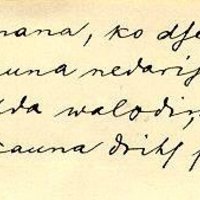 mana, ko dse
auna nedaris
da walodin
auna drihs